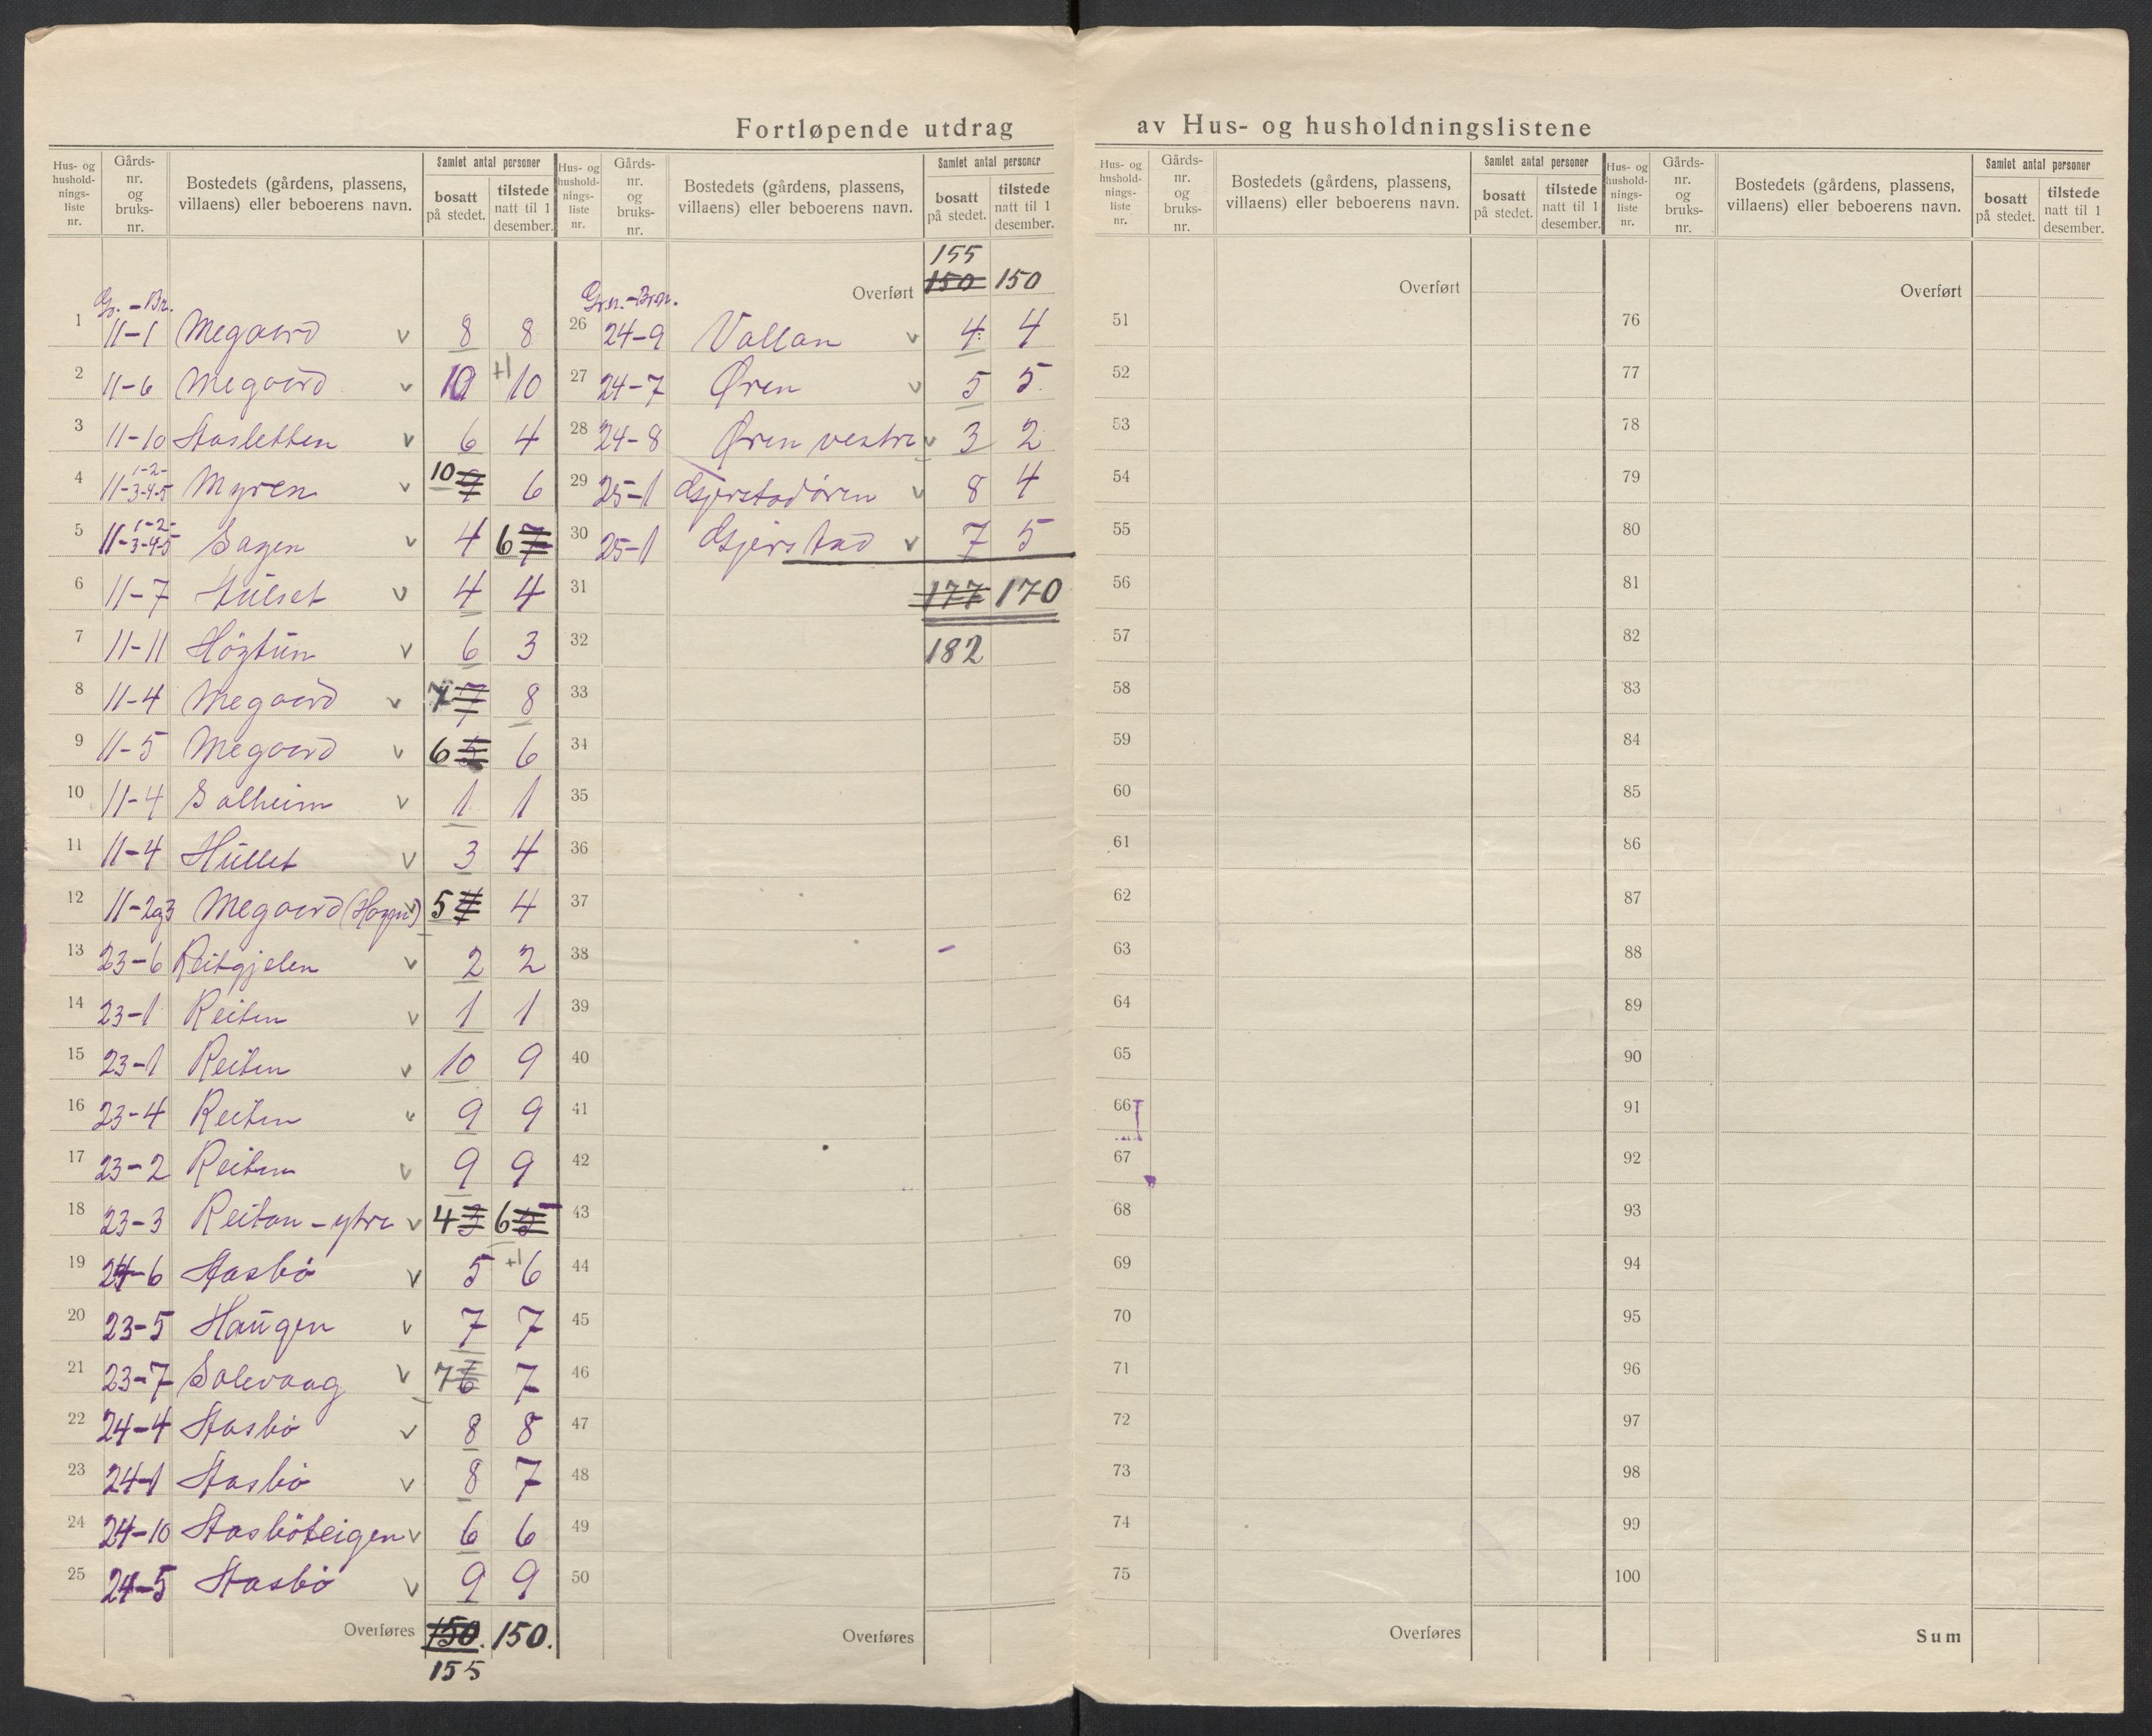 Fortløpende utdrag av Hus- og husholdningslistene
Hus- og hushold-nings-liste nr. | Gårds-nr. og bruks-nr. | Bostedets (gårdens, plassens, villaens) eller beboerens navn. | Samlet antal personer bosatt på stedet. | tilstede natt til 1 desember.
Gr. - Br.
1 11-1 Megaard v 8 8
2 11-6 Megaard v 10 +1 10
3 11-10 Aasletten v 6 4
4 11-1-2-3-4-5 Myren v 10 6
5 11-1-2-3-4-5 Sagen v 4 6 7
6 11-7 v 4 4
7 11-11 Högtun v 6 3
8 11-4 Megaard v 7 7 8
9 11-5 Megaard v 6 5 6
10 11-4 Solheim v 1 1
11 11-4 Hullet v 3 4
12 11-2og3 Megaard v 5 4 4
13 23-6 Reitgjelen v 2 2
14 23-1 Reiten v 1 1
15 23-1 Reiten v 10 9
16 23-4 Reiten v 9 9
17 23-2 Reiten v 9 9
18 23-3 Reitan-ytre v 4 3 6 5
19 24-6 Aasbö v 5 +1 6
20 23-5 Haugen v 7 7
21 23-7 Solevaag v 7 6 7
22 24-4 Aasbö v 8 8
23 24-1 Aasbö v 8 7
24 24-10 Aasböteigen v 6 6
25 24-5 Aasbö v 9 9
Overføres 150. 150.
155
Hus- og hushold-nings-liste nr. | Gårds-nr. og bruks-nr. | Bostedets (gårdens, plassens, villaens) eller beboerens navn. | Samlet antal personer bosatt på stedet. | tilstede natt til 1 desember.
155
Overført 150 150
Grn.-Brn.
26 24-9 Vollan v 4 4
27 24-7 Øren v 5 5
28 24-8 Øren vestre v 3 2
29 25-1 Gjerstadören v 8 4
30 25-1 Gjerstad v 7 5
31 177 170
32 182
33
34
35
36
37
38
39
40
41
42
43
44
45
46
47
48
49
50
Overføres
Hus- og hushold-nings-liste nr. | Gårds-nr. og bruks-nr. | Bostedets (gårdens, plassens, villaens) eller beboerens navn. | Samlet antal personer bosatt på stedet. | tilstede natt til 1 desember.
Overført
51
52
53
54
55
56
57
58
59
60
61
62
63
64
65
66
67
68
69
70
71
72
73
74
75
Overføres
Hus- og hushold-nings-liste nr. | Gårds-nr. og bruks-nr. | Bostedets (gårdens, plassens, villaens) eller beboerens navn. | Samlet antal personer bosatt på stedet. | tilstede natt til 1 desember.
Overført
76
77
78
79
80
81
82
83
84
85
86
87
88
89
90
91
92
93
94
95
96
97
98
99
100
Sum